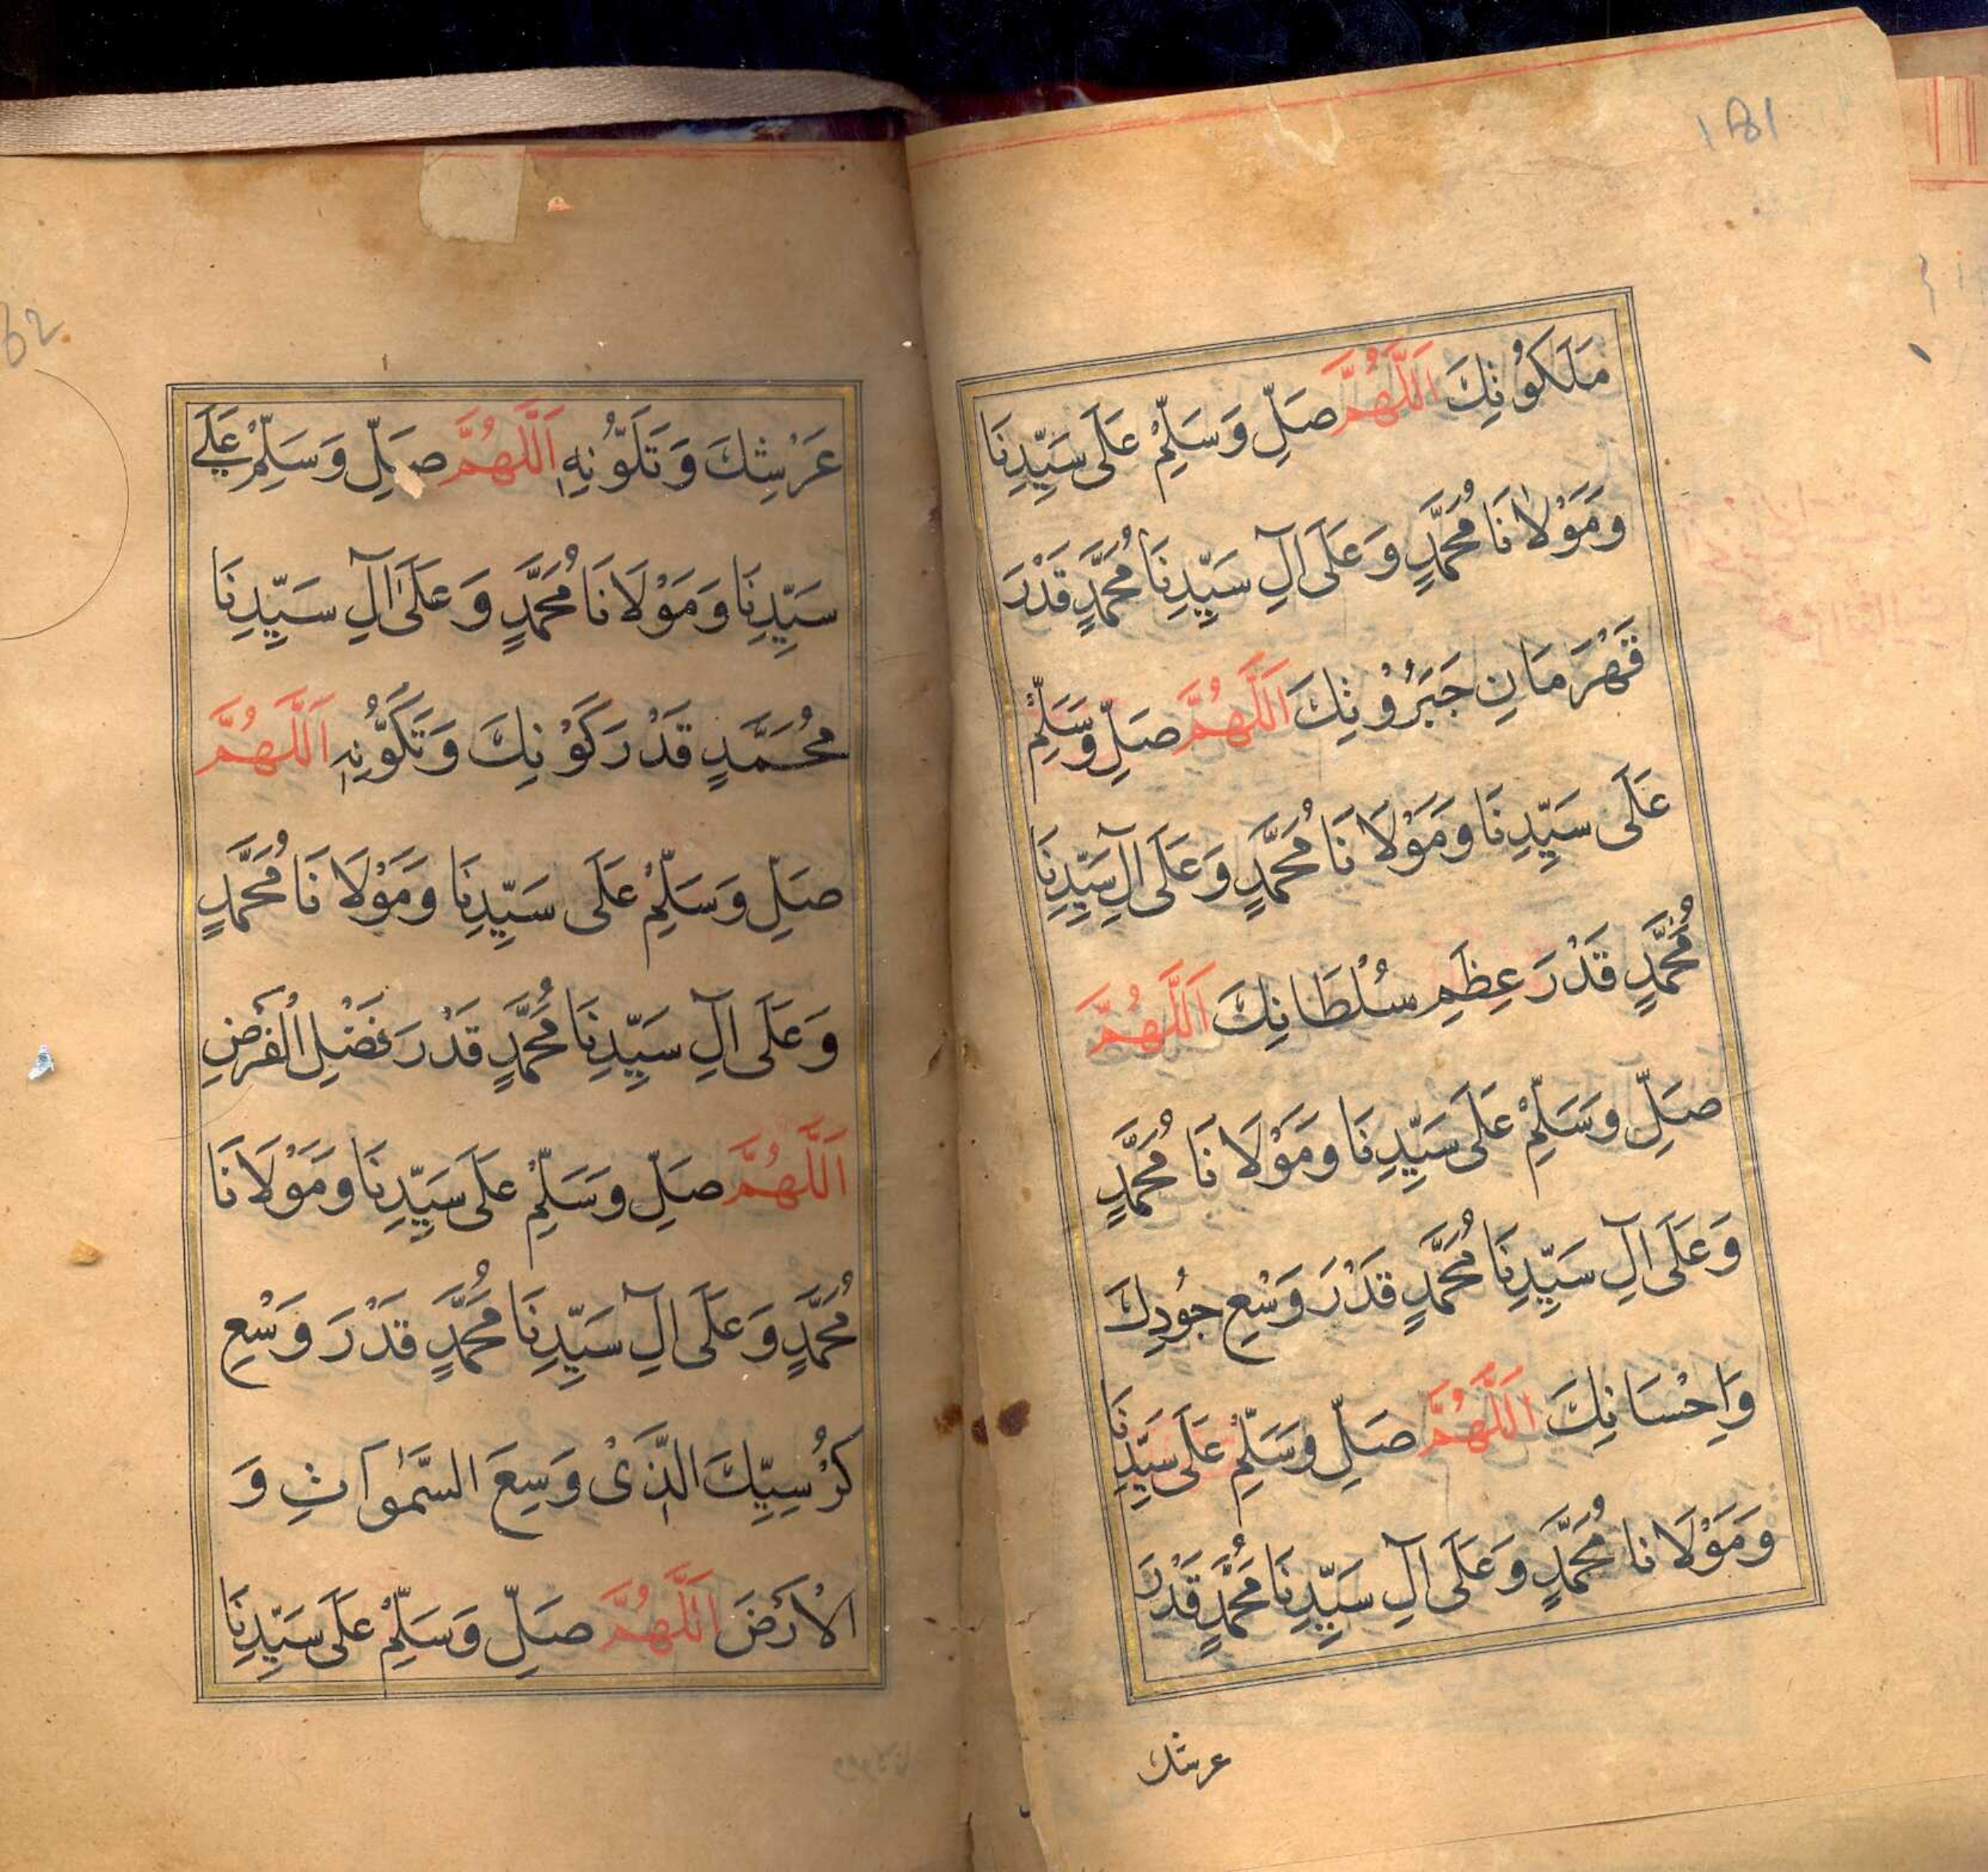 مَلَكُوتِكَ اَللّٰهُمَّ صَلِّ وَسَلِّمْ عَلَى سَيِّدِنَا
وَمَوْلَانَا مُحَمَّدٍ وَعَلَى آلِ سَيِّدِنَا مُحَمَّدٍ قَدْرَ
قَهْرَمَانِ جَبَرُوْتِكَ اَللّٰهُمَّ صَلِّ وَسَلِّمْ
عَلَى سَيِّدِنَا وَمَوْلَانَا مُحَمَّدٍ وَعَلَى آلِ سَيِّدِنَا
مُحَمَّدٍ قَدْرَ عِظَمِ سُلْطَانِكَ اَللّٰهُمَّ
صَلِّ وَسَلِّمْ عَلَى سَيِّدِنَا وَمَوْلَانَا مُحَمَّدٍ
وَعَلَى آلِ سَيِّدِنَا مُحَمَّدٍ قَدْرَ وَسْعِ جُوْدِكَ
وَاِحْسَانِكَ اَللّٰهُمَّ صَلِّ وَسَلِّمْ عَلَى سَيِّدِنَا
وَمَوْلَانَا مُحَمَّدٍ وَعَلَى آلِ سَيِّدِنَا مُحَمَّدٍ قَدْرَ
عرشك
عَرْشِكَ وَتَلَوُّنِهِ اَللّٰهُمَّ صَلِّ وَسَلِّمْ عَلَى
سَيِّدِنَا وَمَوْلَانَا مُحَمَّدٍ وَعَلَى آلِ سَيِّدِنَا
مُحَمَّدٍ قَدْرَ كَوْنِكَ وَتَكَوُّنِهِ اَللّٰهُمَّ
صَلِّ وَسَلِّمْ عَلَى سَيِّدِنَا وَمَوْلَانَا مُحَمَّدٍ
وَعَلَى آلِ سَيِّدِنَا مُحَمَّدٍ قَدْرَ فَضْلِ الْفَرْضِ
اَللّٰهُمَّ صَلِّ وَسَلِّمْ عَلَى سَيِّدِنَا وَمَوْلَانَا
مُحَمَّدٍ وَعَلَى آلِ سَيِّدِنَا مُحَمَّدٍ قَدْرَ وَسْعِ
كُرْسِيِّكَ الَّذِىْ وَسِعَ السَّمٰوَاتِ وَ
الْاَرْضَ اَللّٰهُمَّ صَلِّ وَسَلِّمْ عَلَى سَيِّدِنَا